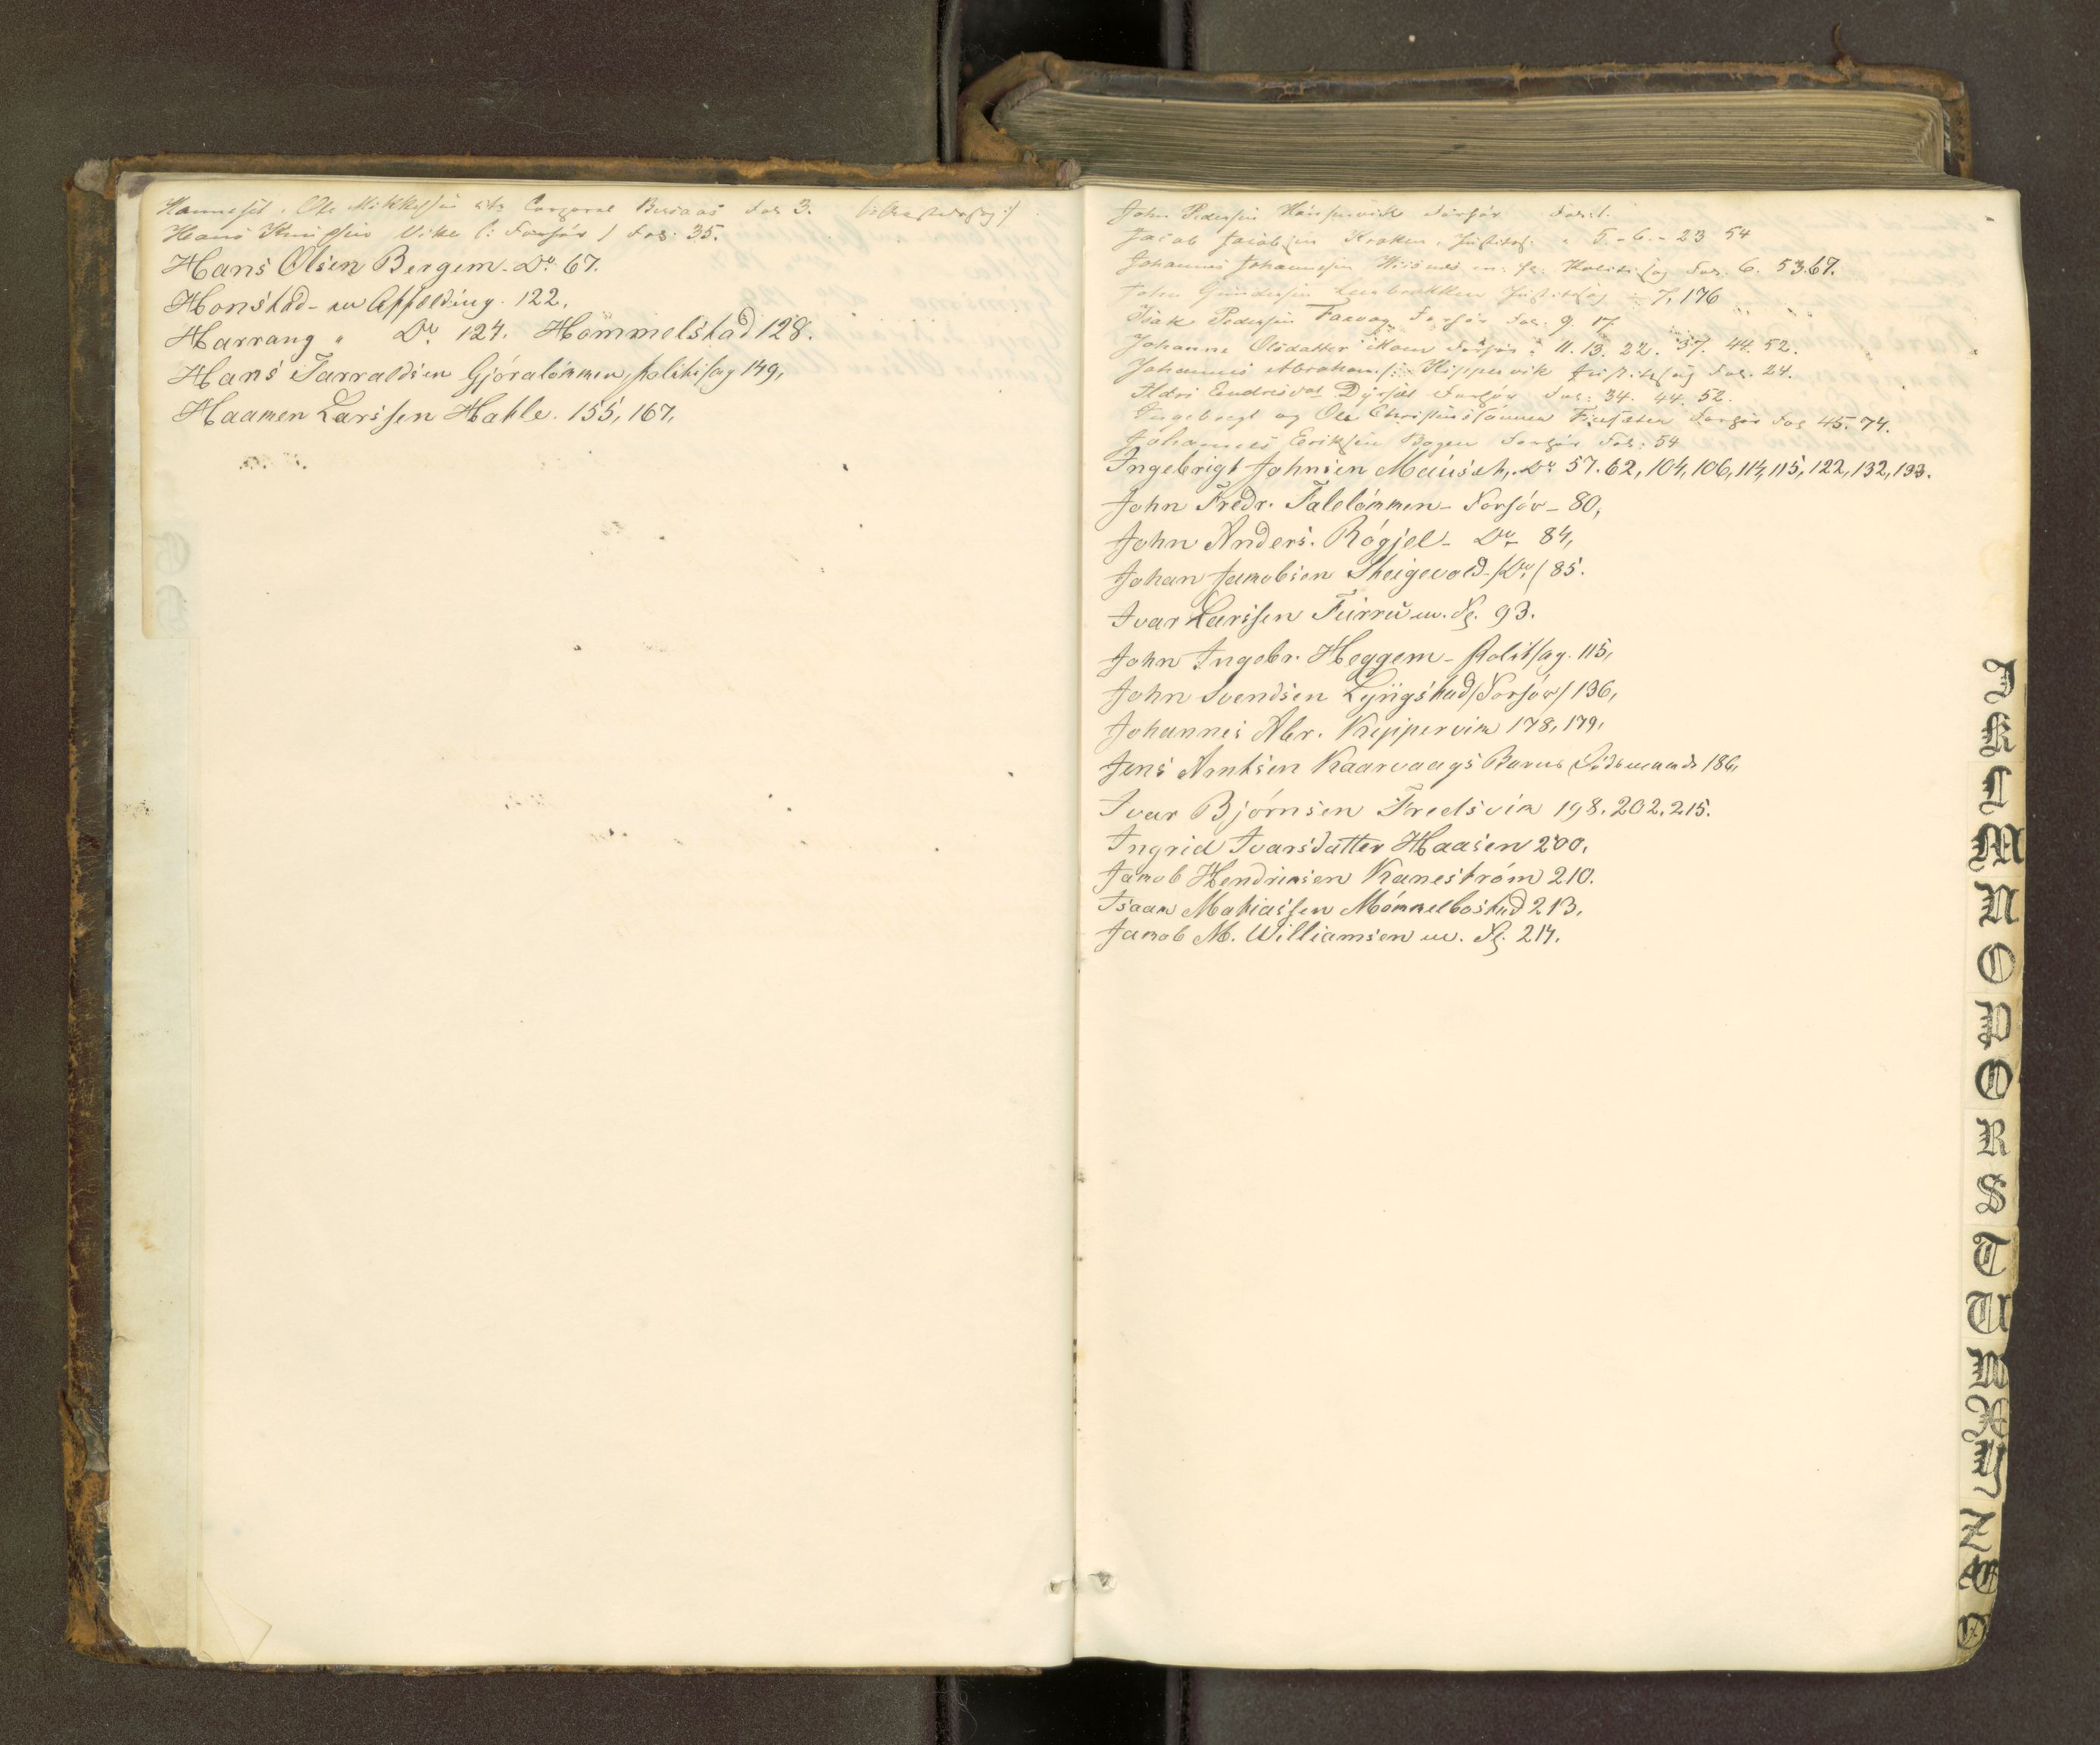 Ole Mikkelsen Corporal Fol 3.
Hans Knudsen Vike (: Forhør / Fol: 35.
Hans Olsen Bergem. Do. 67.
Honstad - en Affældning. 122.
Harrang " Do 124. Hommelstad 128.
Hans Tarraldsen Gjóralókken, politisag 149,
Haamen Larssen Hatle. 155, 167,
John Pedersen Forhør Fol: 1.
Jacob Jacobsen Kroken, Justitss. " 5.-6.-23 54
Johannes Johannesen m: fl: Politisag Fol. 6. 53.67.
John Gundersen Justitssag - 7, 176
Isak Pedersen Farvog Forhør Fol: 9. 17.
Johanne Olsdatter Moen Forhør " 11. 13. 22. 37. 44. 52.
Johannes Abraham: Kippervik Justitssag Fol. 24.
Endresdat Dyrsæt Forhør Fol: 34. 44. 52.
Ingebregt og Ole Christensønner Forhør Fol 45. 74.
Johannes Eriksen Bogen Forhør Fol: 54
Ingebrigt Johnsen Mausæt, Do 57. 62, 104, 106, 114, 115, 122, 132, 133.
John Fredr. Talelókken - Forhór - 80,
John Anders. Rógjel - Do - 84,
Johan Jakobsen Skeigevold - /Do/ 85.
Ivar Larssen Furru m. Fl. 93.
John Ingebr. Heggem - Politsag. 115,
John Svendsen Lyngstad /Forhór/ 136,
Johannes Abr. Keppervik 178, 179,
Jens Arntsen Kaarvaags Barns 186,
Ivar Bjórnsen Fredsvik 198. 202. 215.
Ingrid Ivarsdatter Haasen 200.
Jakob Hendriksen Kanestróm 210.
Isaak Mathiassen Mókkelbostad 213.
Jakob M. Williamsen m. Fl. 214.
I
K
L
M
N
O
P
Q
R
S
T
U
W
X
Y
Z
Æ
Ø